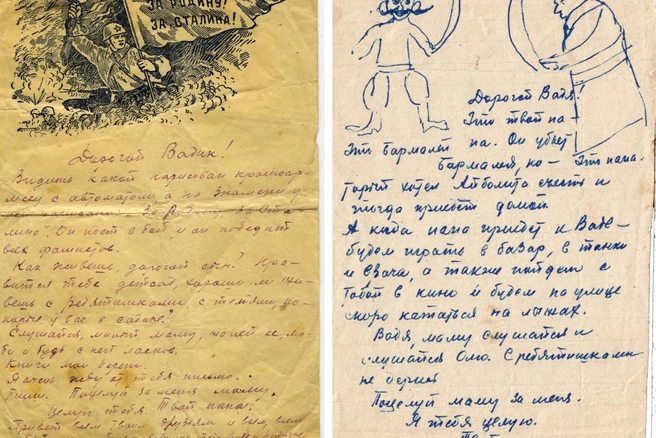 ЗА РОДИНУ!
ЗА СТАЛИНА!
Дорогой Вадик!
Видишь какой нарисован красноар-
меец с автоматом, а на знамени у
него написано: За Родину, За Ста-
лина". Он идет в бой и он победит
всех фашистов.
Как живешь дорогой сын? Нра-
вится тебе детсад, хорошо ли жи-
вешь с ребятишками с теми, ко-
торые у вас в садике?
Слушайся, милый, маму, жалей ее, лю-
би и будь с ней ласков.
Книги мои береги.
Я очень жду от тебя письмо.
Поцелуй за меня маму.
Целую тебя. Твой папа.
Привет всем твоим друзьям и всем
Дорогой Вадя!
Это твой па-
Это бармалей па. Он убьет
бармалея, но- Это папа.
торый хотел Айболита съесть и
тогда приедет домой.
А когда папа приедет к Ваде-
будем играть в базар, в танки
и а также пойдем с
тобой в кино и будем на улице
скоро кататься на лыжах.
Вадя, маму слушайся и
слушайся Омо. С ребятишками
не
Поцелуй маму за меня.
Я тебя целую.